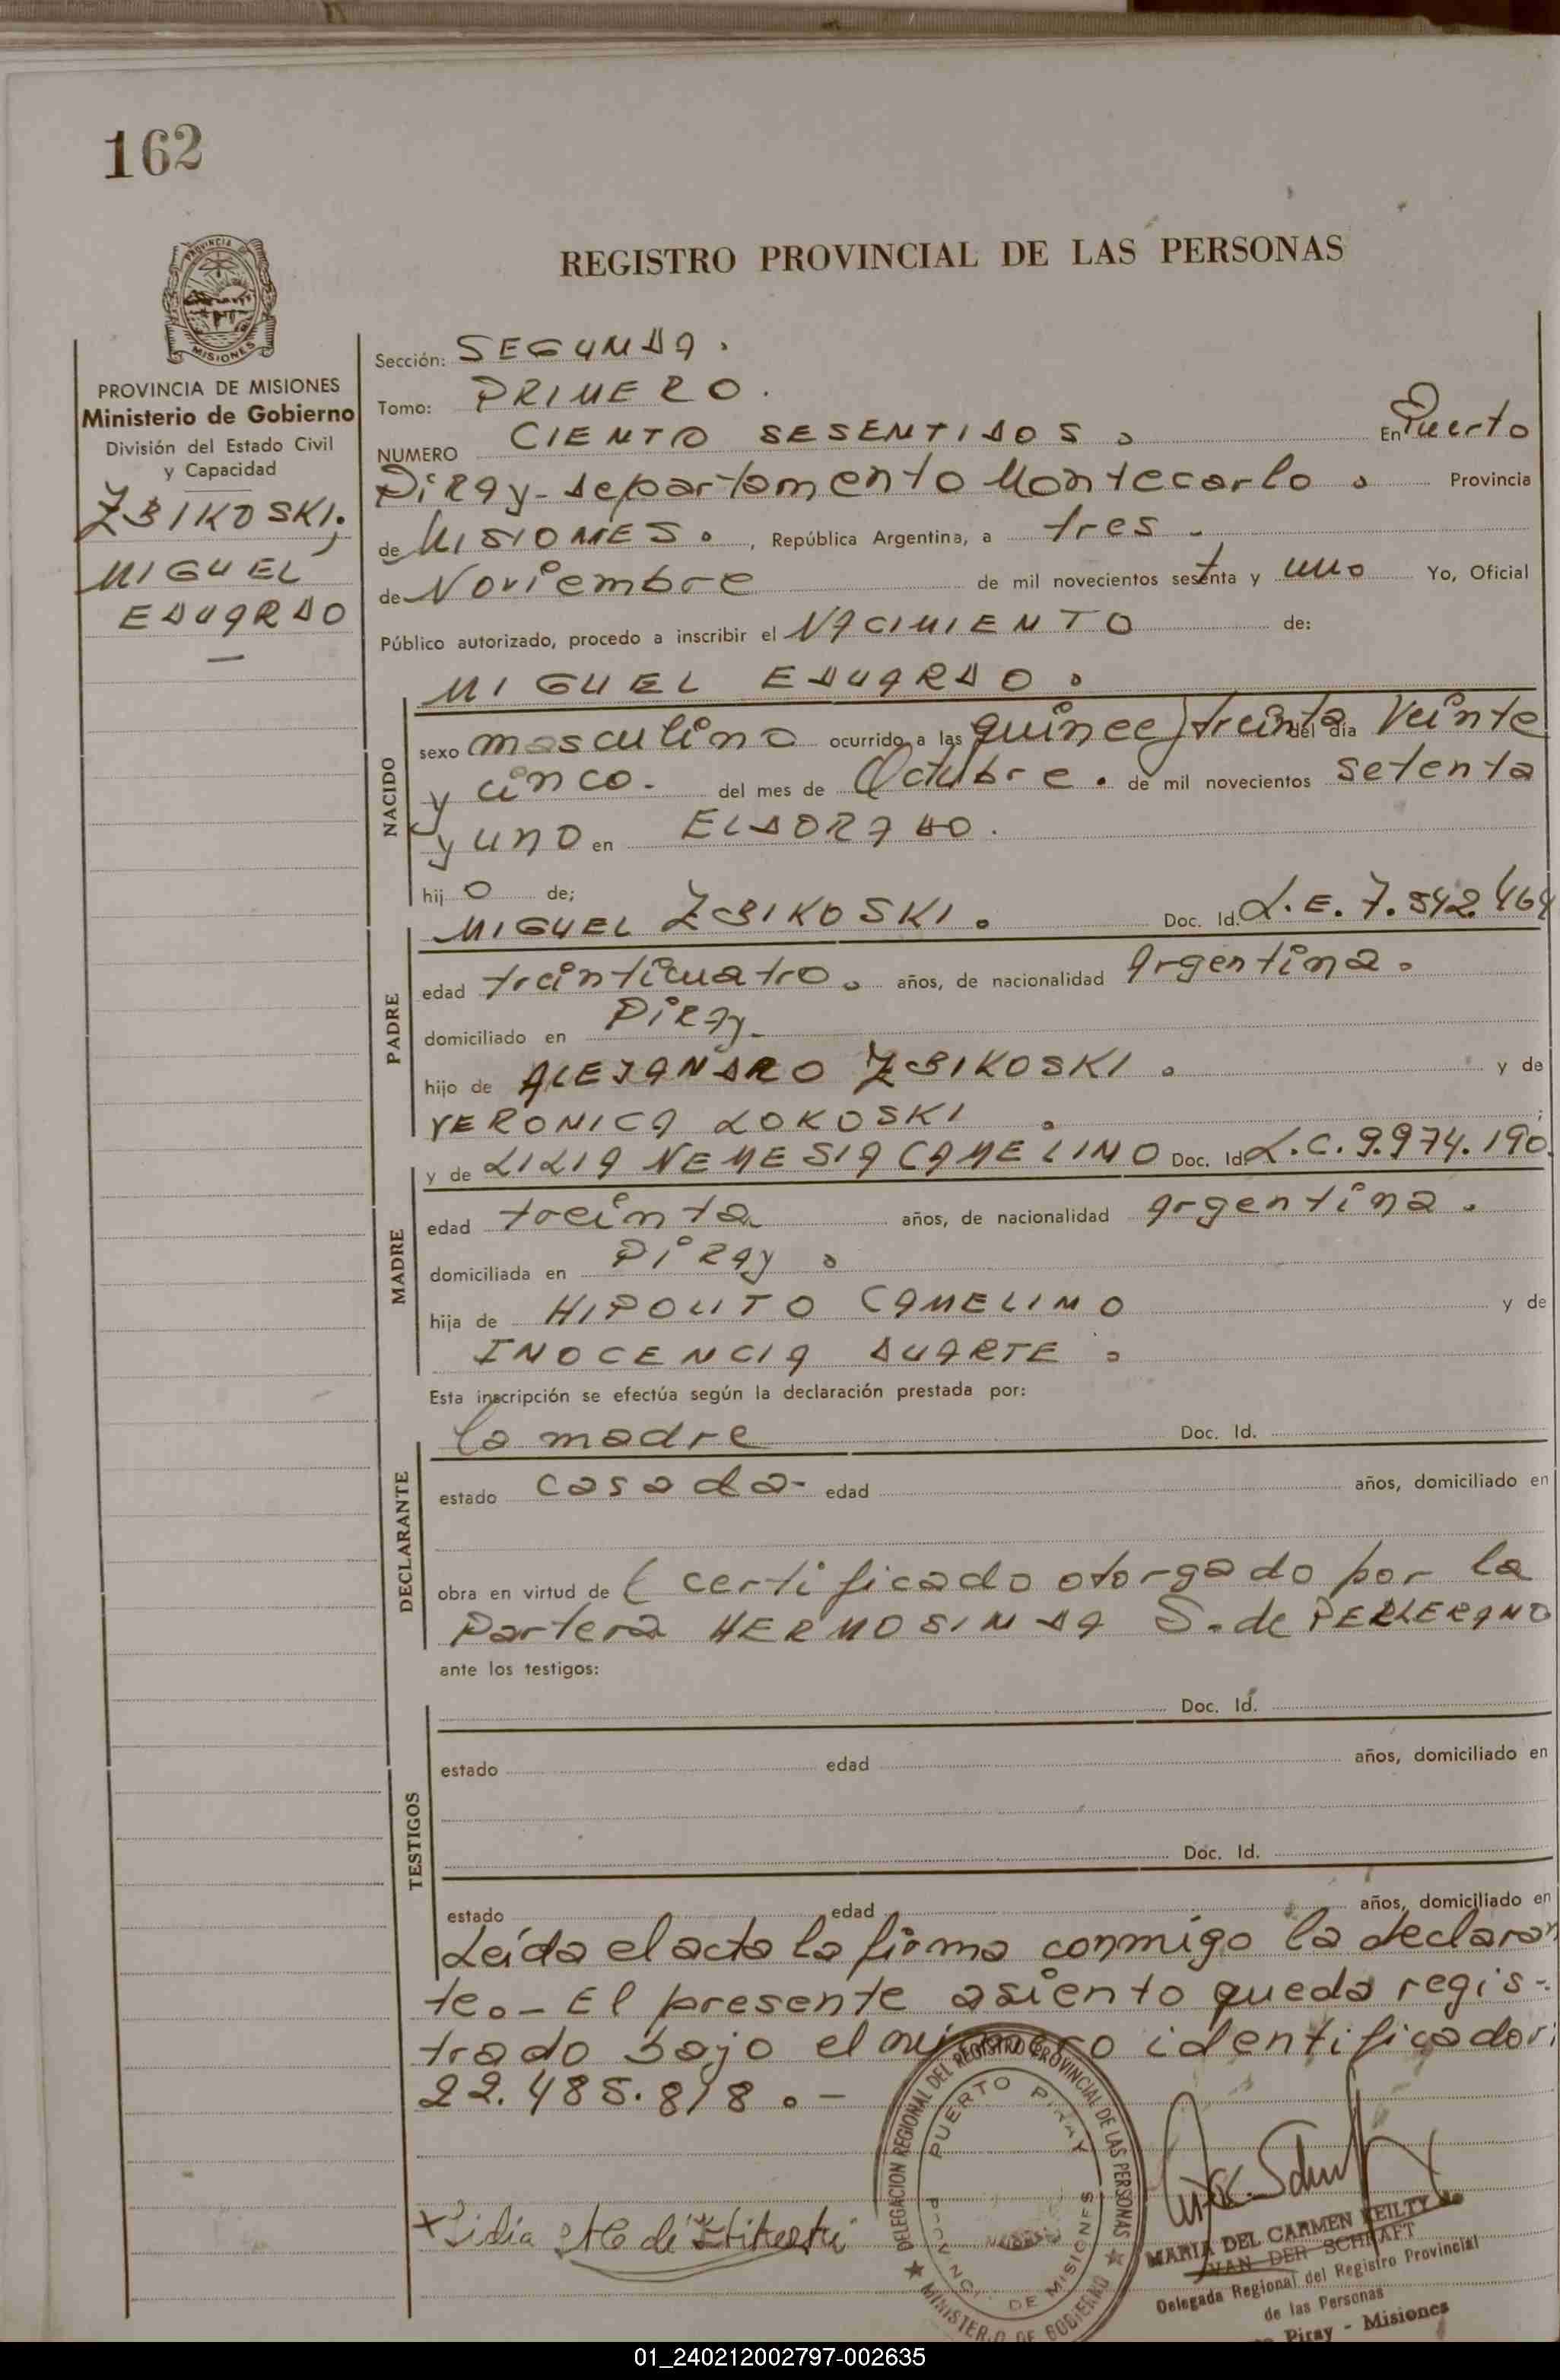 162
REGISTRO PROVINCIAL DE LAS PERSONAS
PROVINCIA DE MISIONES
PROVINCIA DE MISIONES
Ministerio de Gobierno
División del Estado Civil
y Capacidad
ZBIKOSKI,
MIGUEL
EDUARDO
Sección: SEGUNDA.
Tomo: PRIMERO.
NUMERO CIENTO SESENTIDOS. En Puerto
Piray - departamento Montecarlo. Provincia
de MISIONES. , República Argentina, a tres.
de Noviembre de mil novecientos setenta y uno Yo, Oficial
Público autorizado, procedo a inscribir el NACIMIENTO de:
MIGUEL EDUARDO.
NACIDO
sexo masculino ocurrido a las quince y treinta del día Veinte
y cinco. del mes de Octubre. de mil novecientos setenta
y uno en ELDORADO.
hijo de;
MIGUEL ZBIKOSKI. Doc. Id. L.E. 7.542.464
PADRE
edad treinticuatro. años, de nacionalidad Argentina.
domiciliado en Piray.
hijo de ALEJANDRO ZBIKOSKI. y de
VERONICA LOKOSKI. ;
y de LILIA NEMESIA CAMELINO Doc. Id. L.C. 9.974.190.
MADRE
edad treinta años, de nacionalidad argentina.
domiciliada en Piray.
hija de HIPOLITO CAMELINO y de
INOCENCIA DUARTE.
Esta inscripción se efectúa según la declaración prestada por:
la madre Doc. Id.
DECLARANTE
estado casada- edad años, domiciliado en
obra en virtud de ( certificado otorgado por la
Partera HERMOSINDA S. de PELLERANO
ante los testigos:
Doc. Id.
TESTIGOS
estado edad años, domiciliado en
Doc. Id.
estado edad años, domiciliado en
Leída el acta la firma conmigo la declaran
te.- El presente asiento queda regis-
trado bajo el número identificador:
22.485.818.-
DELEGACION REGIONAL DEL REGISTRO PROVINCIAL DE LAS PERSONAS
PUERTO PIRAY
DE MISIONES
MINISTERIO DE GOBIERNO
MARIA DEL CARMEN REILTY
VAN DER SCHRAFT
Delegada Regional del Registro Provincial
de las Personas
Piray - Misiones
01_240212002797-002635